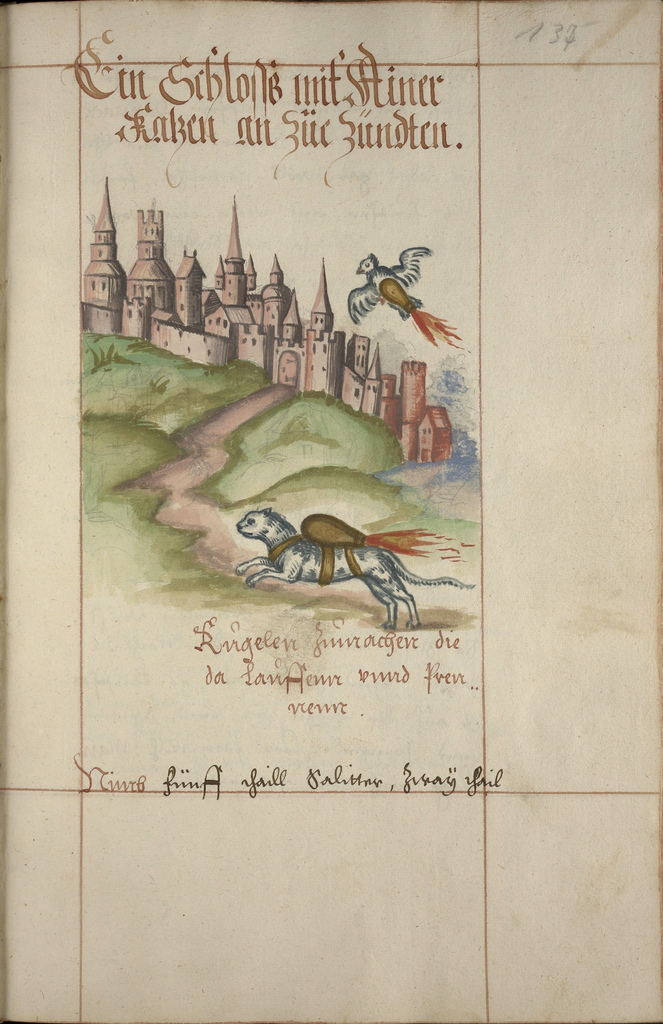 137
Ein Schloss mit Ainer
Katzen an züe zündten.
Kugelen zumachen die
da Lauffenn vnnd Pren„
nenn.
Nimb fünff thaill Salitter, zway thail